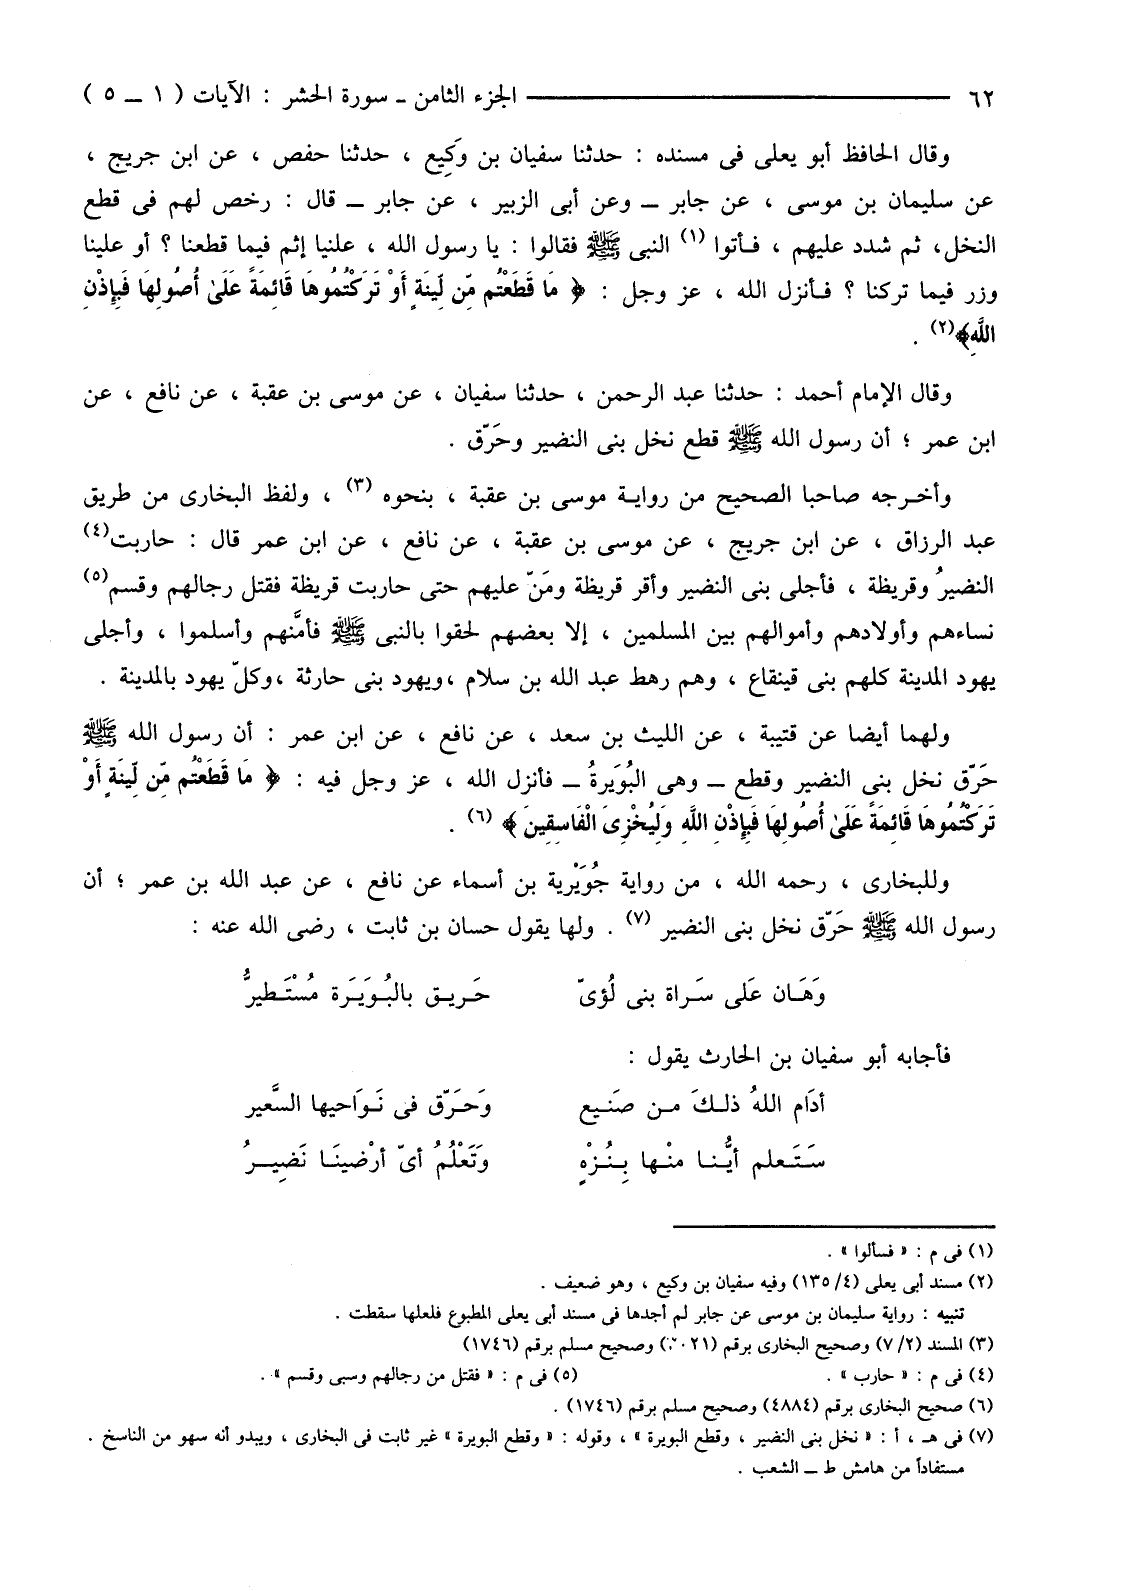 ٦٢ ــــــــ الجزء الثامن ـ سورة الحشر : الآيات ( ١ ــ ٥ )
وقال الحافظ أبو يعلى فى مسنده : حدثنا سفيان بن وَكِيع ، حدثنا حفص ، عن ابن جريج ،
عن سليمان بن موسى ، عن جابر ــ وعن أبى الزبير ، عن جابر ــ قال : رخص لهم فى قطع
النخل، ثم شدد عليهم ، فـأتوا (١) النبى ﷺ فقالوا : يا رسول الله ، علنيا إثم فيما قطعنا ؟ أو علينا
وزر فيما تركنا ؟ فـأنزل الله ، عز وجل : ﴿ مَا قَطَعْتُم مِّن لِّينَةٍ أَوْ تَرَكْتُمُوهَا قَائِمَةً عَلَىٰ أُصُولِهَا فَبِإِذْنِ
اللَّهِ﴾(٢) .
وقال الإمام أحمد : حدثنا عبد الرحمن ، حدثنا سفيان ، عن موسى بن عقبة ، عن نافع ، عن
ابن عمر ؛ أن رسول الله ﷺ قطع نخل بنى النضير وحَرّق .
وأخـرجه صاحبا الصحيح من روايـة موسى بن عقبة ، بنحوه (٣) ، ولفظ البخارى من طريق
عبد الرزاق ، عن ابن جريج ، عن موسى بن عقبة ، عن نافع ، عن ابن عمر قال : حاربت(٤)
النضيرُ وقريظة ، فأجلى بنى النضير وأقر قريظة ومَنّ عليهم حتى حاربت قريظة فقتل رجالهم وقسم(٥)
نساءهم وأولادهم وأموالهم بين المسلمين ، إلا بعضهم لحقوا بالنبى ﷺ فأمَّنهم وأسلموا ، وأجلى
يهود المدينة كلهم بنى قينقاع ، وهم رهط عبد الله بن سلام ،ويهود بنى حارثة ،وكلّ يهود بالمدينة .
ولهما أيضا عن قتيبة ، عن الليث بن سعد ، عن نافع ، عن ابن عمر : أن رسول الله ﷺ
حَرّق نخل بنى النضير وقطع ــ وهى البُوَيرةُ ــ فأنزل الله ، عز وجل فيه : ﴿ مَا قَطَعْتُم مِّن لِّينَةٍ أَوْ
تَرَكْتُمُوهَا قَائِمَةً عَلَىٰ أُصُولِهَا فَبِإِذْنِ اللَّهِ وَلِيُخْزِىَ الْفَاسِقِينَ ﴾ (٦) .
وللبخارى ، رحمه الله ، من رواية جُوَيْرية بن أسماء عن نافع ، عن عبد الله بن عمر ؛ أن
رسول الله ﷺ حَرّق نخل بنى النضير (٧) . ولها يقول حسان بن ثابت ، رضى الله عنه :
وَهَـان عَلَى سَراة بنى لُؤىّ حَـريـق بالبُـوَيَـرة مُسْتَـطيرُّ
فأجابه أبو سفيان بن الحارث يقول :
أدَام اللهُ ذلـكَ مـن صَنَـيع وَحَـرّق فى نَـوَاحيها السَّعير
سَـتَـعلم أيُّـنـا منْـها بِـنُـزْهٍ وَتَعْلَمُ أىّ أرْضينَـا نَضِيـــرُ
(١) فى م : « فسألوا » .
(٢) مسند أبى يعلى (٤/ ١٣٥) وفيه سفيان بن وكيع ، وهو ضعيف .
تنبيه : رواية سليمان بن موسى عن جابر لم أجدها فى مسند أبى يعلى المطبوع فلعلها سقطت .
(٣) المسند (٢/ ٧) وصحيح البخارى برقم (٢٠٢١) وصحيح مسلم برقم (١٧٤٦)
(٤) فى م : « حارب » . (٥) فى م : « فقتل من رجالهم وسبى وقسم » .
(٦) صحيح البخارى برقم (٤٨٨٤) وصحيح مسلم برقم (١٧٤٦) .
(٧) فى هـ ، أ : « نخل بنى النضير ، وقطع البويرة » ، وقوله : « وقطع البويرة » غير ثابت فى البخارى ، ويبدو أنه سهو من الناسخ .
مستفاداً من هامش ط ــ الشعب .